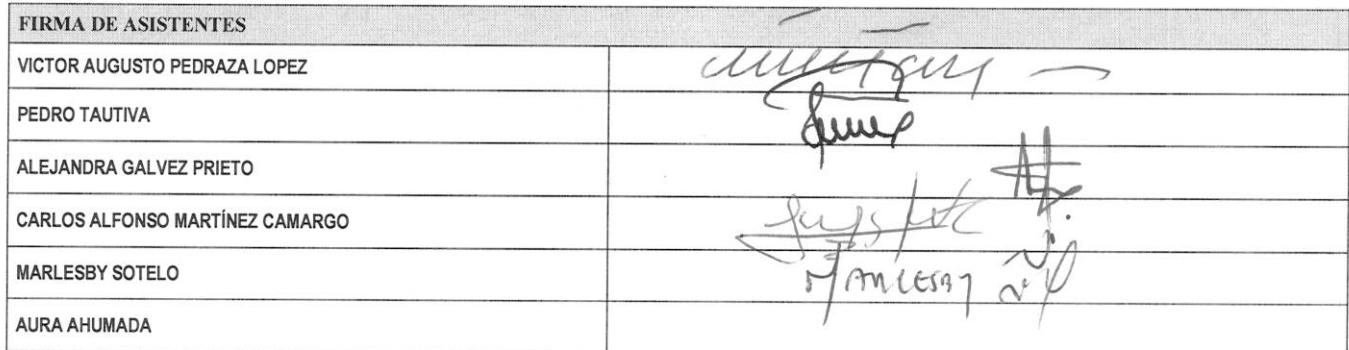 FIRMA DE ASISTENTES
VICTOR AUGUSTO PEDRAZA LOPEZ
PEDRO TAUTIVA
ALEJANDRA GALVEZ PRIETO
CARLOS ALFONSO MARTÍNEZ CAMARGO
MARLESBY SOTELO
MARLESBY
AURA AHUMADA